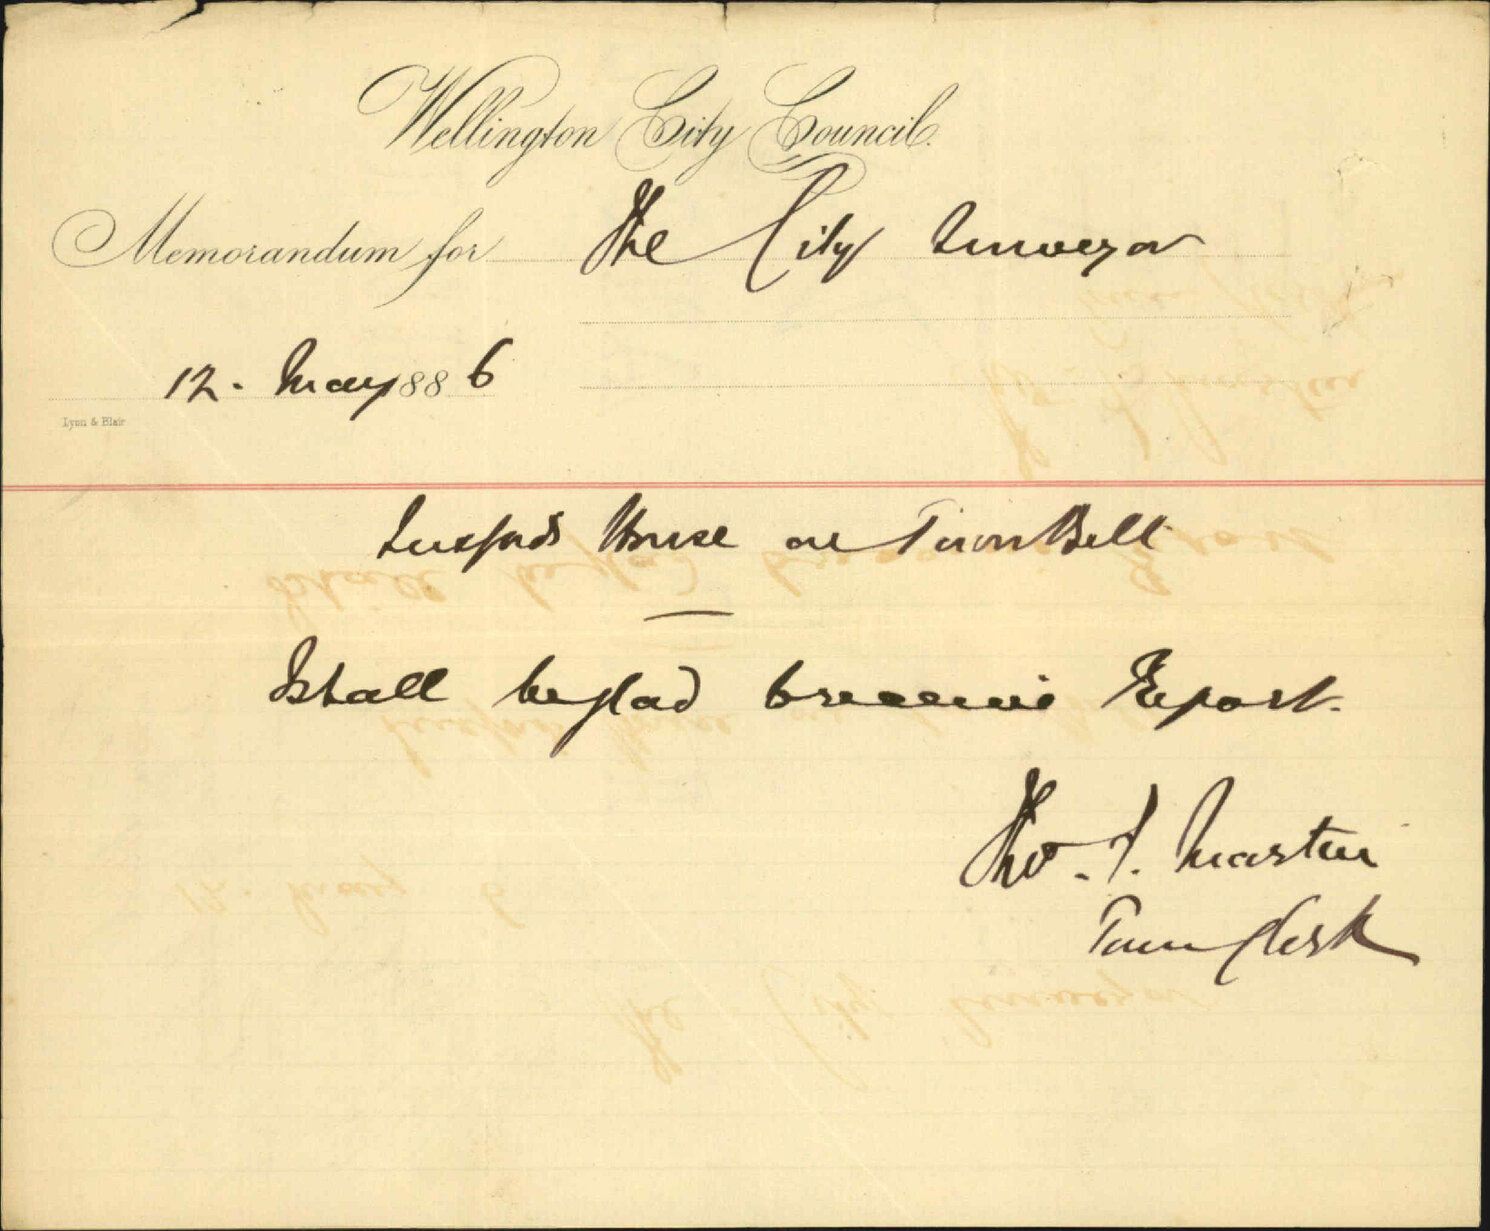 Wellington City Council.
Memorandum for The City Surveyor
12. May 1886
Lyon & Blair
Luxford's House on Town Belt
I shall be glad to receive Report.
Tho. F. Martin
Town Clerk